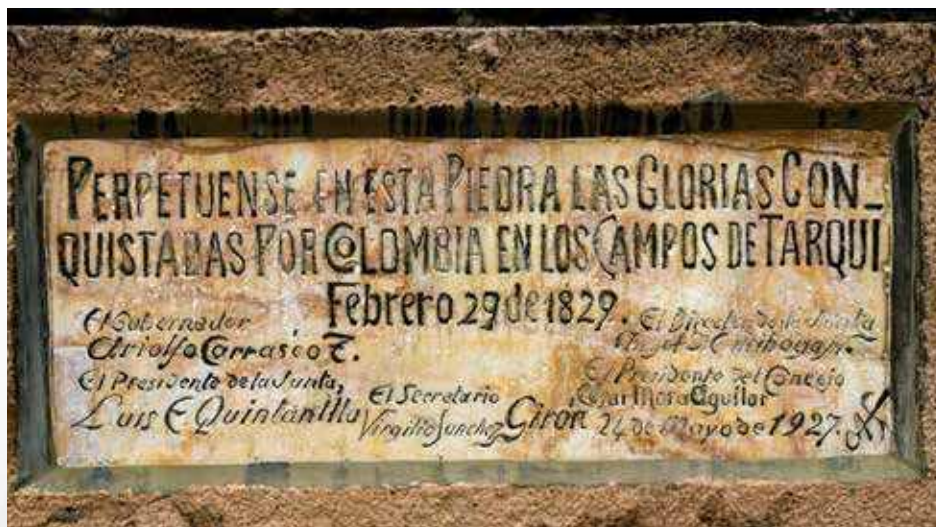 PERPETUENSE EN ESTA PIEDRA LAS GLORIAS CON_
QUISTADAS POR COLOMBIA EN LOS CAMPOS DE TARQUI
Febrero 29 de 1829.
El Gobernador
Ariolfo Carrasco T.
El Presidente de la Junta,
Luis E Quintanilla
El Secretario
Virgilio Sanchez
Girón
El Director de la Junta
El Presidente del Concejo
Mora Aguilar
24 de Mayo de 1927.